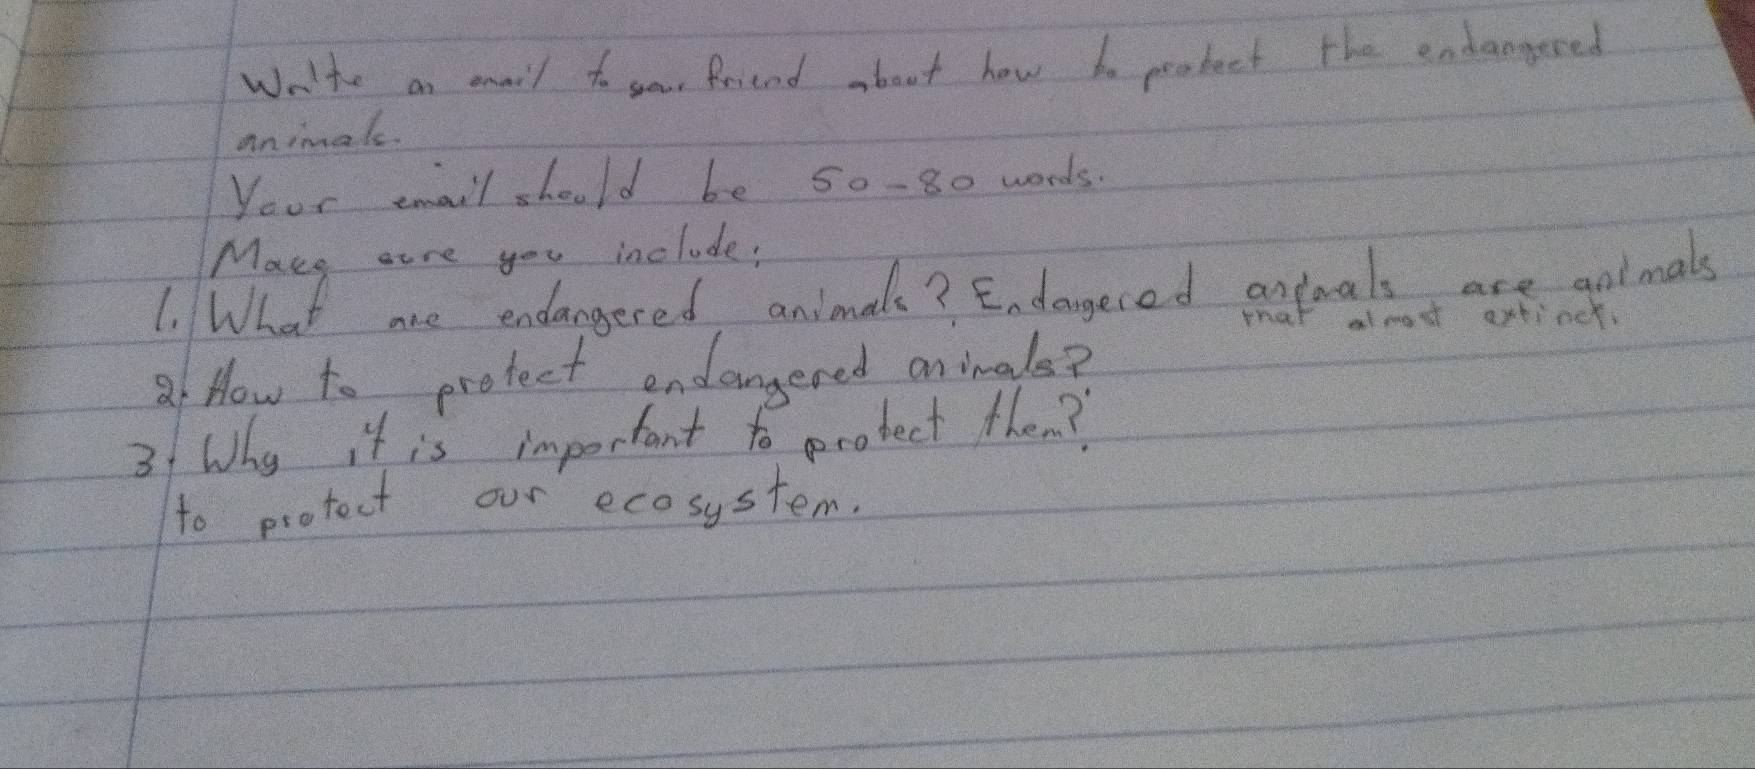 Write an email to your friend about how to protect the endangered
animals.
Your email should be 50-80 words.
Make sure you include:
1. What are endangered animals? Endangered animals are animals
that almost extinct.
2. How to protect endangered animals?
3. Why it is important to protect them?
to protect our ecosystem.